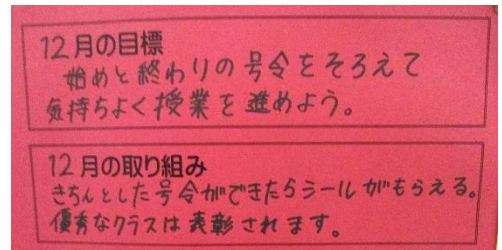 12月の目標
始めと終わりの号令をそろえて
気持ちよく授業を進めよう。
12月の取り組み
きちんとした号令ができたらシールがもらえる。
優秀なクラスは表彰されます。